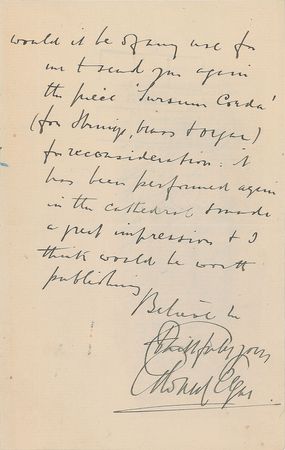 would it be of any use for
me to send you again
the piece 'Sursum Corda'
(for Strings, brass & organ)
for reconsideration: it
has been performed again
in the cathedral & made
a great impression & I
think would be worth
publishing
Believe me
Faithfully yours
Edward Elgar